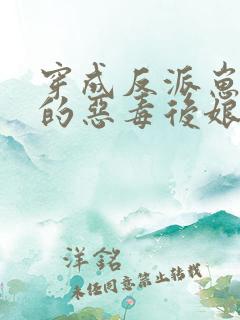 穿成反派崽
的惡毒後娘
洋銘
未经同意禁止转载